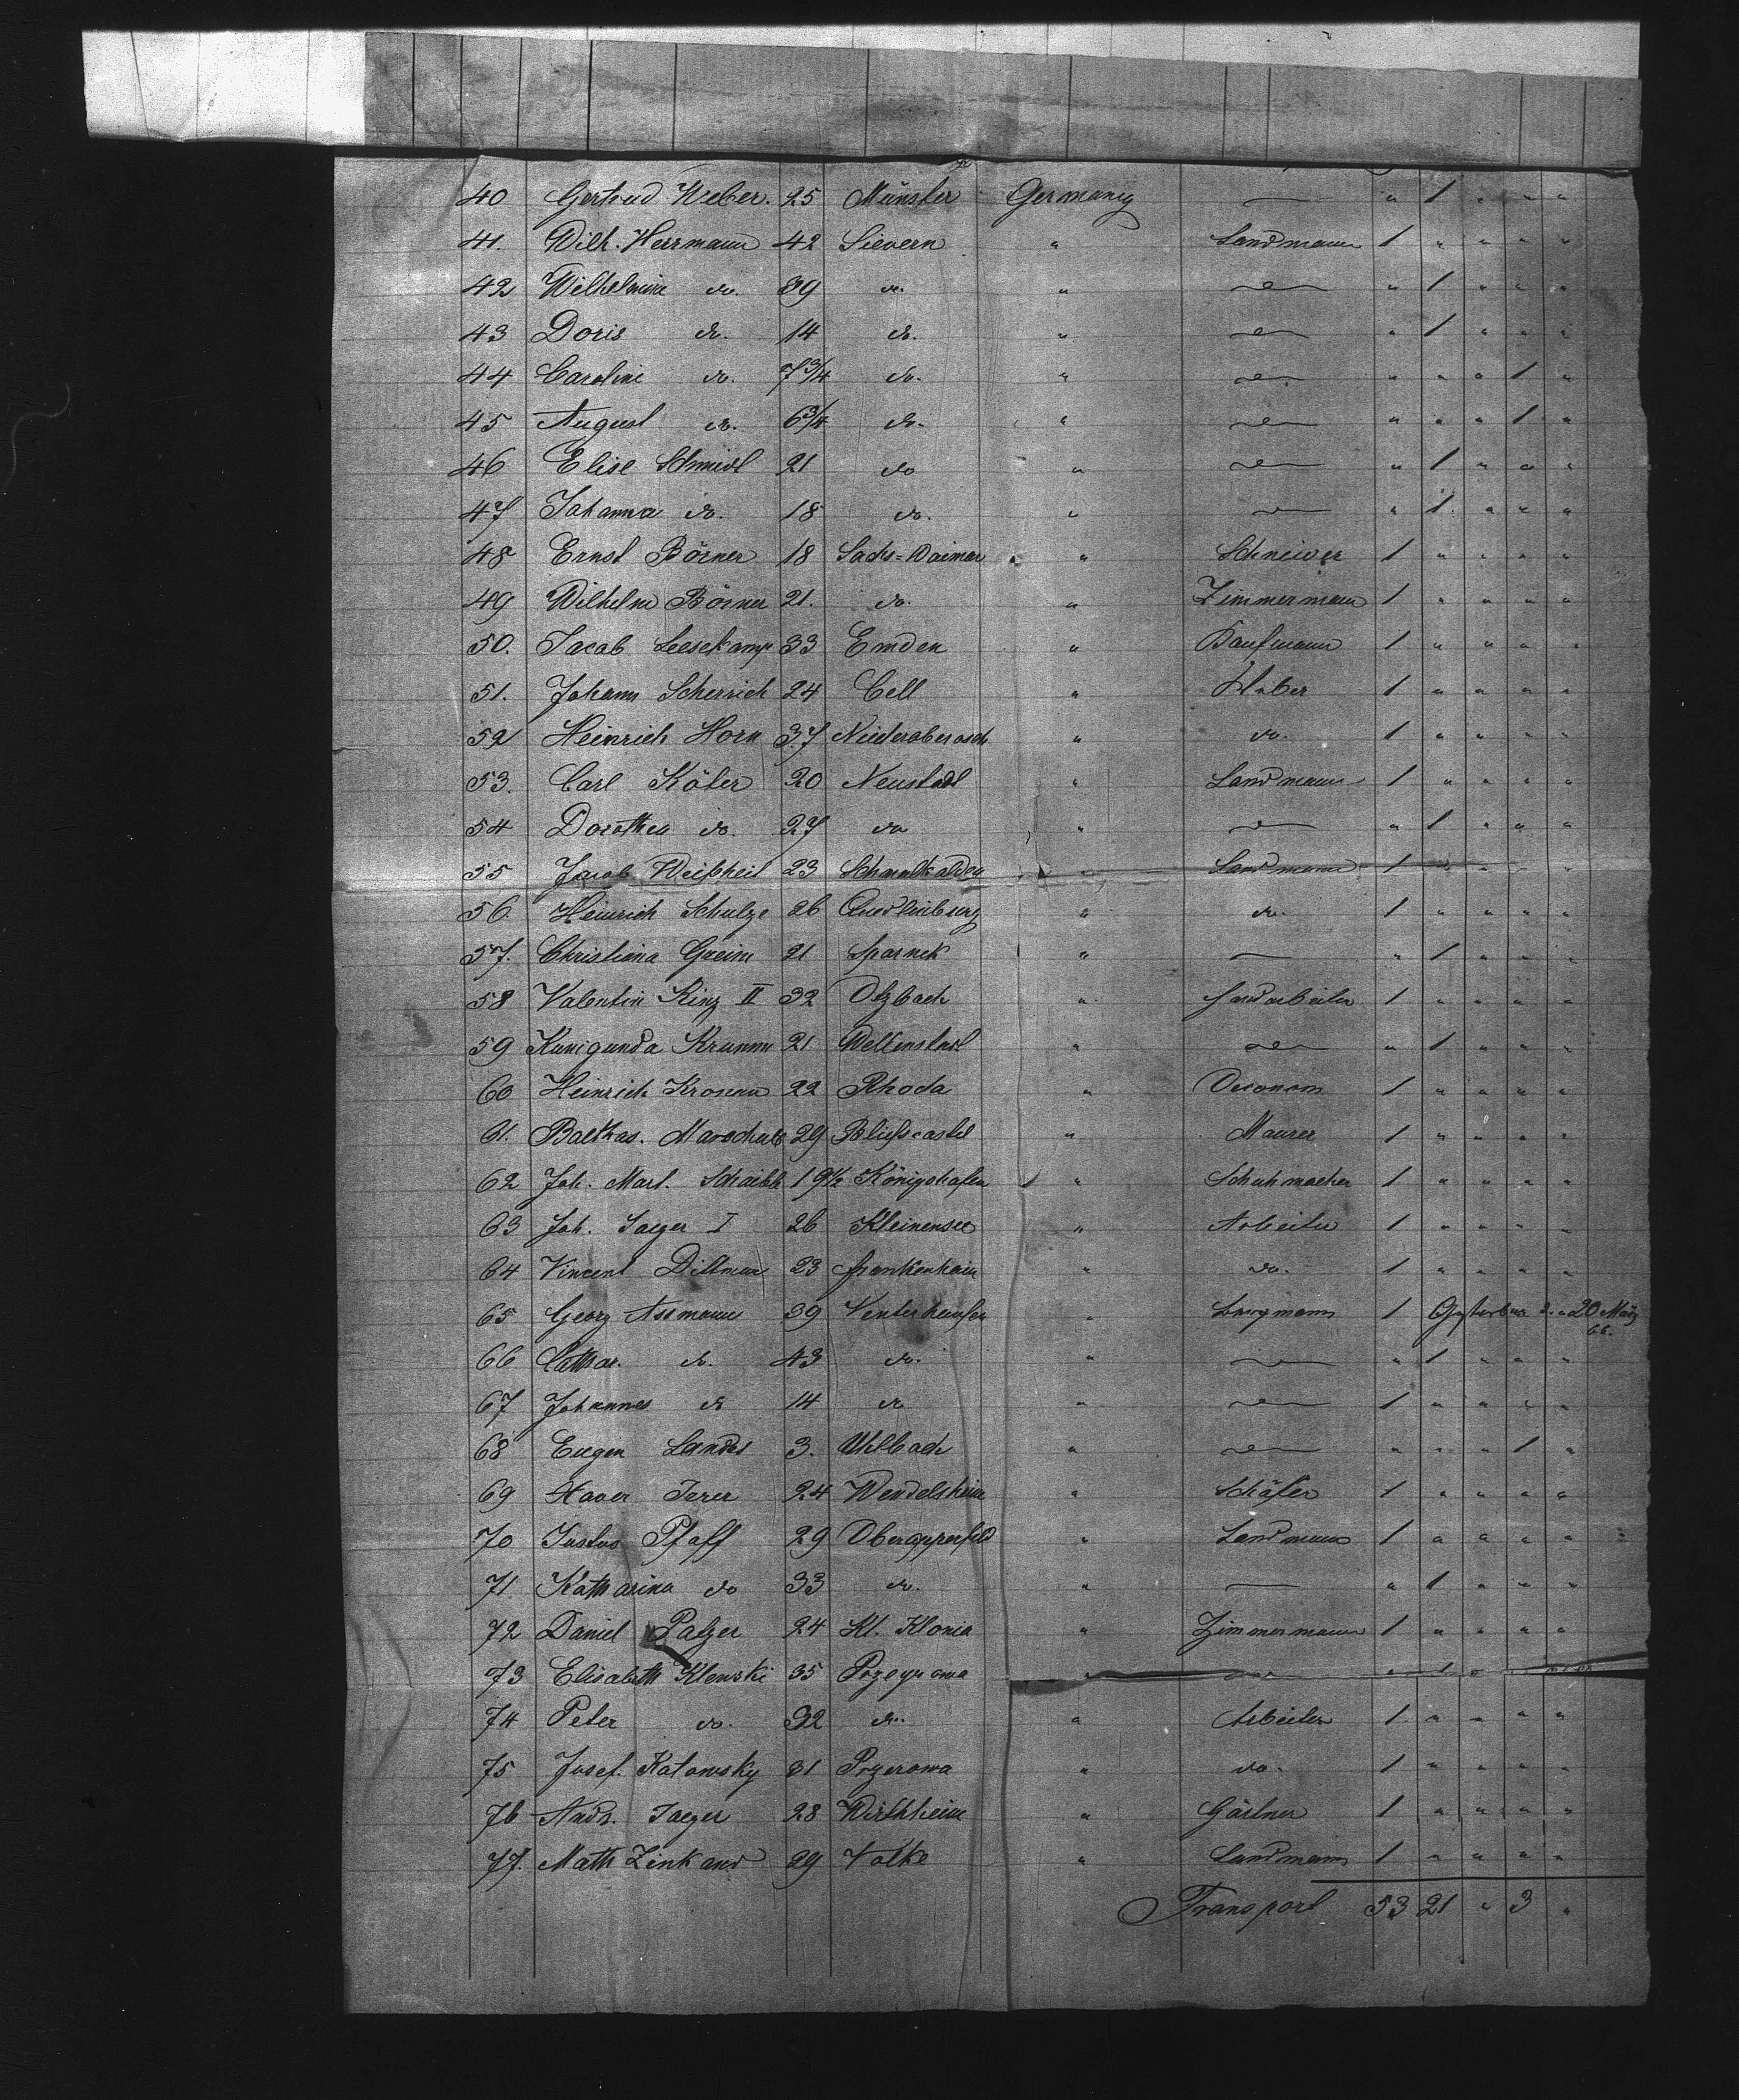 40 Gertrud Weber. 25 Münster Germany — " 1 " " "
41. Wilh. Herrmann 42 Sievern " Landmann 1 " " " "
42 Wilhelmine do. 39 do. " — " 1 " " "
43 Doris do. 14 do. " — " 1 " " "
44 Caroline do. 7 3/4 do. " — " " " 1 "
45 August do. 6 3/4 do. " — " " " 1 "
46 Elise Schmidt 21 do " — " 1 " " "
47 Johanna do. 18 do. " — " 1 " " "
48 Ernst Börner 18 Sachs=Waimar " Schneider 1 " " " "
49 Wilhelm Börner 21. do. " Zimmermann 1 " " " "
50. Jacob Leesekamp 33 Emden " Kaufmann 1 " " " "
51. Johann Scherrich 24 Cell " Weber 1 " " " "
52 Heinrich Horn 37 " do. 1 " " " "
53. Carl Köter 20 Neustadt " Landmann 1 " " " "
54 Dorothea do. 27 do " — " 1 " " "
55 Jacob Weißheit 23 Schmalkalden " Landmann 1 " " " "
56 Heinrich Schulze 26 Quedlinburg " do. 1 " " " "
57. Christiana Greim 21 Sparnek " — " 1 " " "
58 Valentin Kinz II 32 Otzbach " Handarbeiter 1 " " " "
59 Kunigunda Krumm 21 " — " 1 " " "
60 Heinrich 22 Rhoda " Oeconom 1 " " " "
61. Balthas. 29 Bließcastel " Maurer 1 " " " "
62 Joh. Mart. 19 1/2 Königshofen " Schuhmacher 1 " " " "
63 Joh. Jaeger I 26 Kleinensee " Arbeiter 1 " " " "
64 Vincent Dittmar 23 Frankenhain " do. 1 " " " "
65 Georg Assmann 39 " Bergmann 1 Gestorben d. 20 März
66.
66 Cathar. do. 43 do. " — " 1 " " "
67 Johannes do 14 do " — 1 " " " "
68 Eugen Landes 3. Uhlbach " — " " " 1 "
69 Xaver 24 Wendelsheim " Schäfer 1 " " " "
70 Justus Pfaff 29 " Landmann 1 " " " "
71 Katharina do 33 do. " — " 1 " " "
72 Daniel Palzer 24 Kl. Klonia " Zimmermann 1 " " " "
73 Elisabeth Klenski 35 " — " 1 " " "
74 Peter do. 32 do. " Arbeiter 1 " " " "
75 Josef. Katowsky 31 Przerowa " do. 1 " " " "
76 Andr. Jaeger 28 Wirthheim " Gärtner 1 " " " "
77. Math Zinkand 29 " Landmann 1 " " " "
Transport 53 21 " 3 "